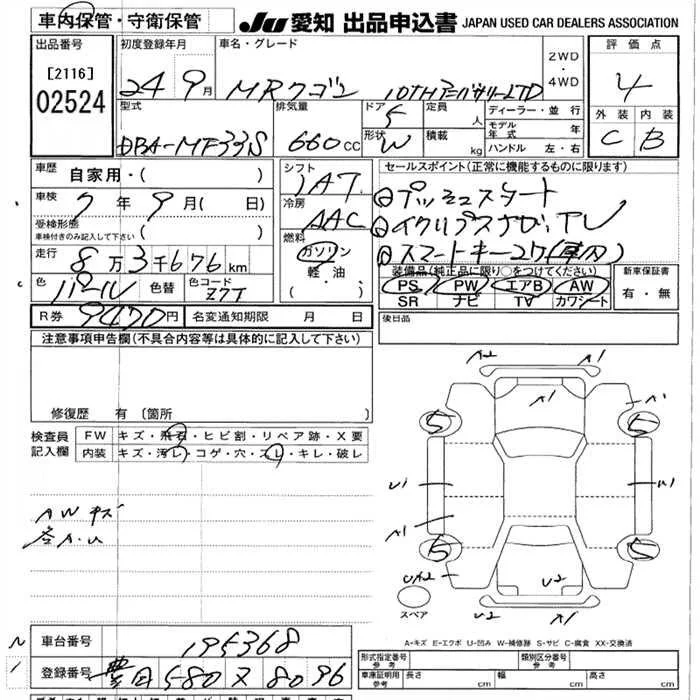 車内保管・守衛保管 JU 愛知 出品申込書 JAPAN USED CAR DEALERS ASSOCIATION
出品番号 初度登録年月 車名・グレード 2WD・4WD 評価点
[2116] 02524 24 9月 MRワゴン 10TH アニバーサリーLTD 4
型式 排気量 ドア 5 定員 人 ディーラー・並行 外装 内装
DBA-MF33S 660cc 形状 W 積載 kg モデル年式 年 ハンドル 左・右 C B
車歴 自家用・( ) シフト 1AT セールスポイント(正常に機能するものに限ります)
車検 7年 9月( 日) 冷房 AAC プッシュスタート
受検形態 車検付きのみ記入して下さい ( ) 燃料 イクリプスナビ,TV
走行 8万3千676km ガソリン・軽油・( ) スマートキー2ケ(車内)
色 パール 色替 色コード Z7T 装備品(純正品に限り○をつけてください) 新車保証書
PS PW エアB AW 有・無
SR ナビ TV カワシート
R券 9470円 名変通知期限 月 日 後日品
注意事項申告欄(不具合内容等は具体的に記入して下さい)
修復歴 有 〔箇所 〕
検査員記入欄 FW キズ・飛石・ヒビ割・リペア跡・X要
内装 キズ・汚レ・コゲ・穴・スレ・キレ・破レ
A2 A1
A1 A1
S S
U1 U1
A1
S S
UA2 U2
U2 A1
AW キズ
各A.U
スペア
A-キズ E-エクボ U-凹み W-補修跡 S-サビ C-腐食 XX-交換済
車台番号 195368 型式指定番号 参考 類別区分番号 参考
登録番号 豊田 580 ヌ 8096 車庫証明用 参考 長さ cm 幅 cm 高さ cm